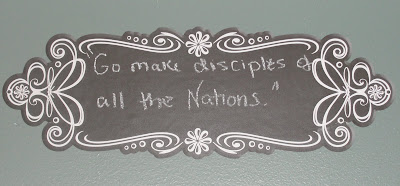 "Go make disciples of
all the Nations."